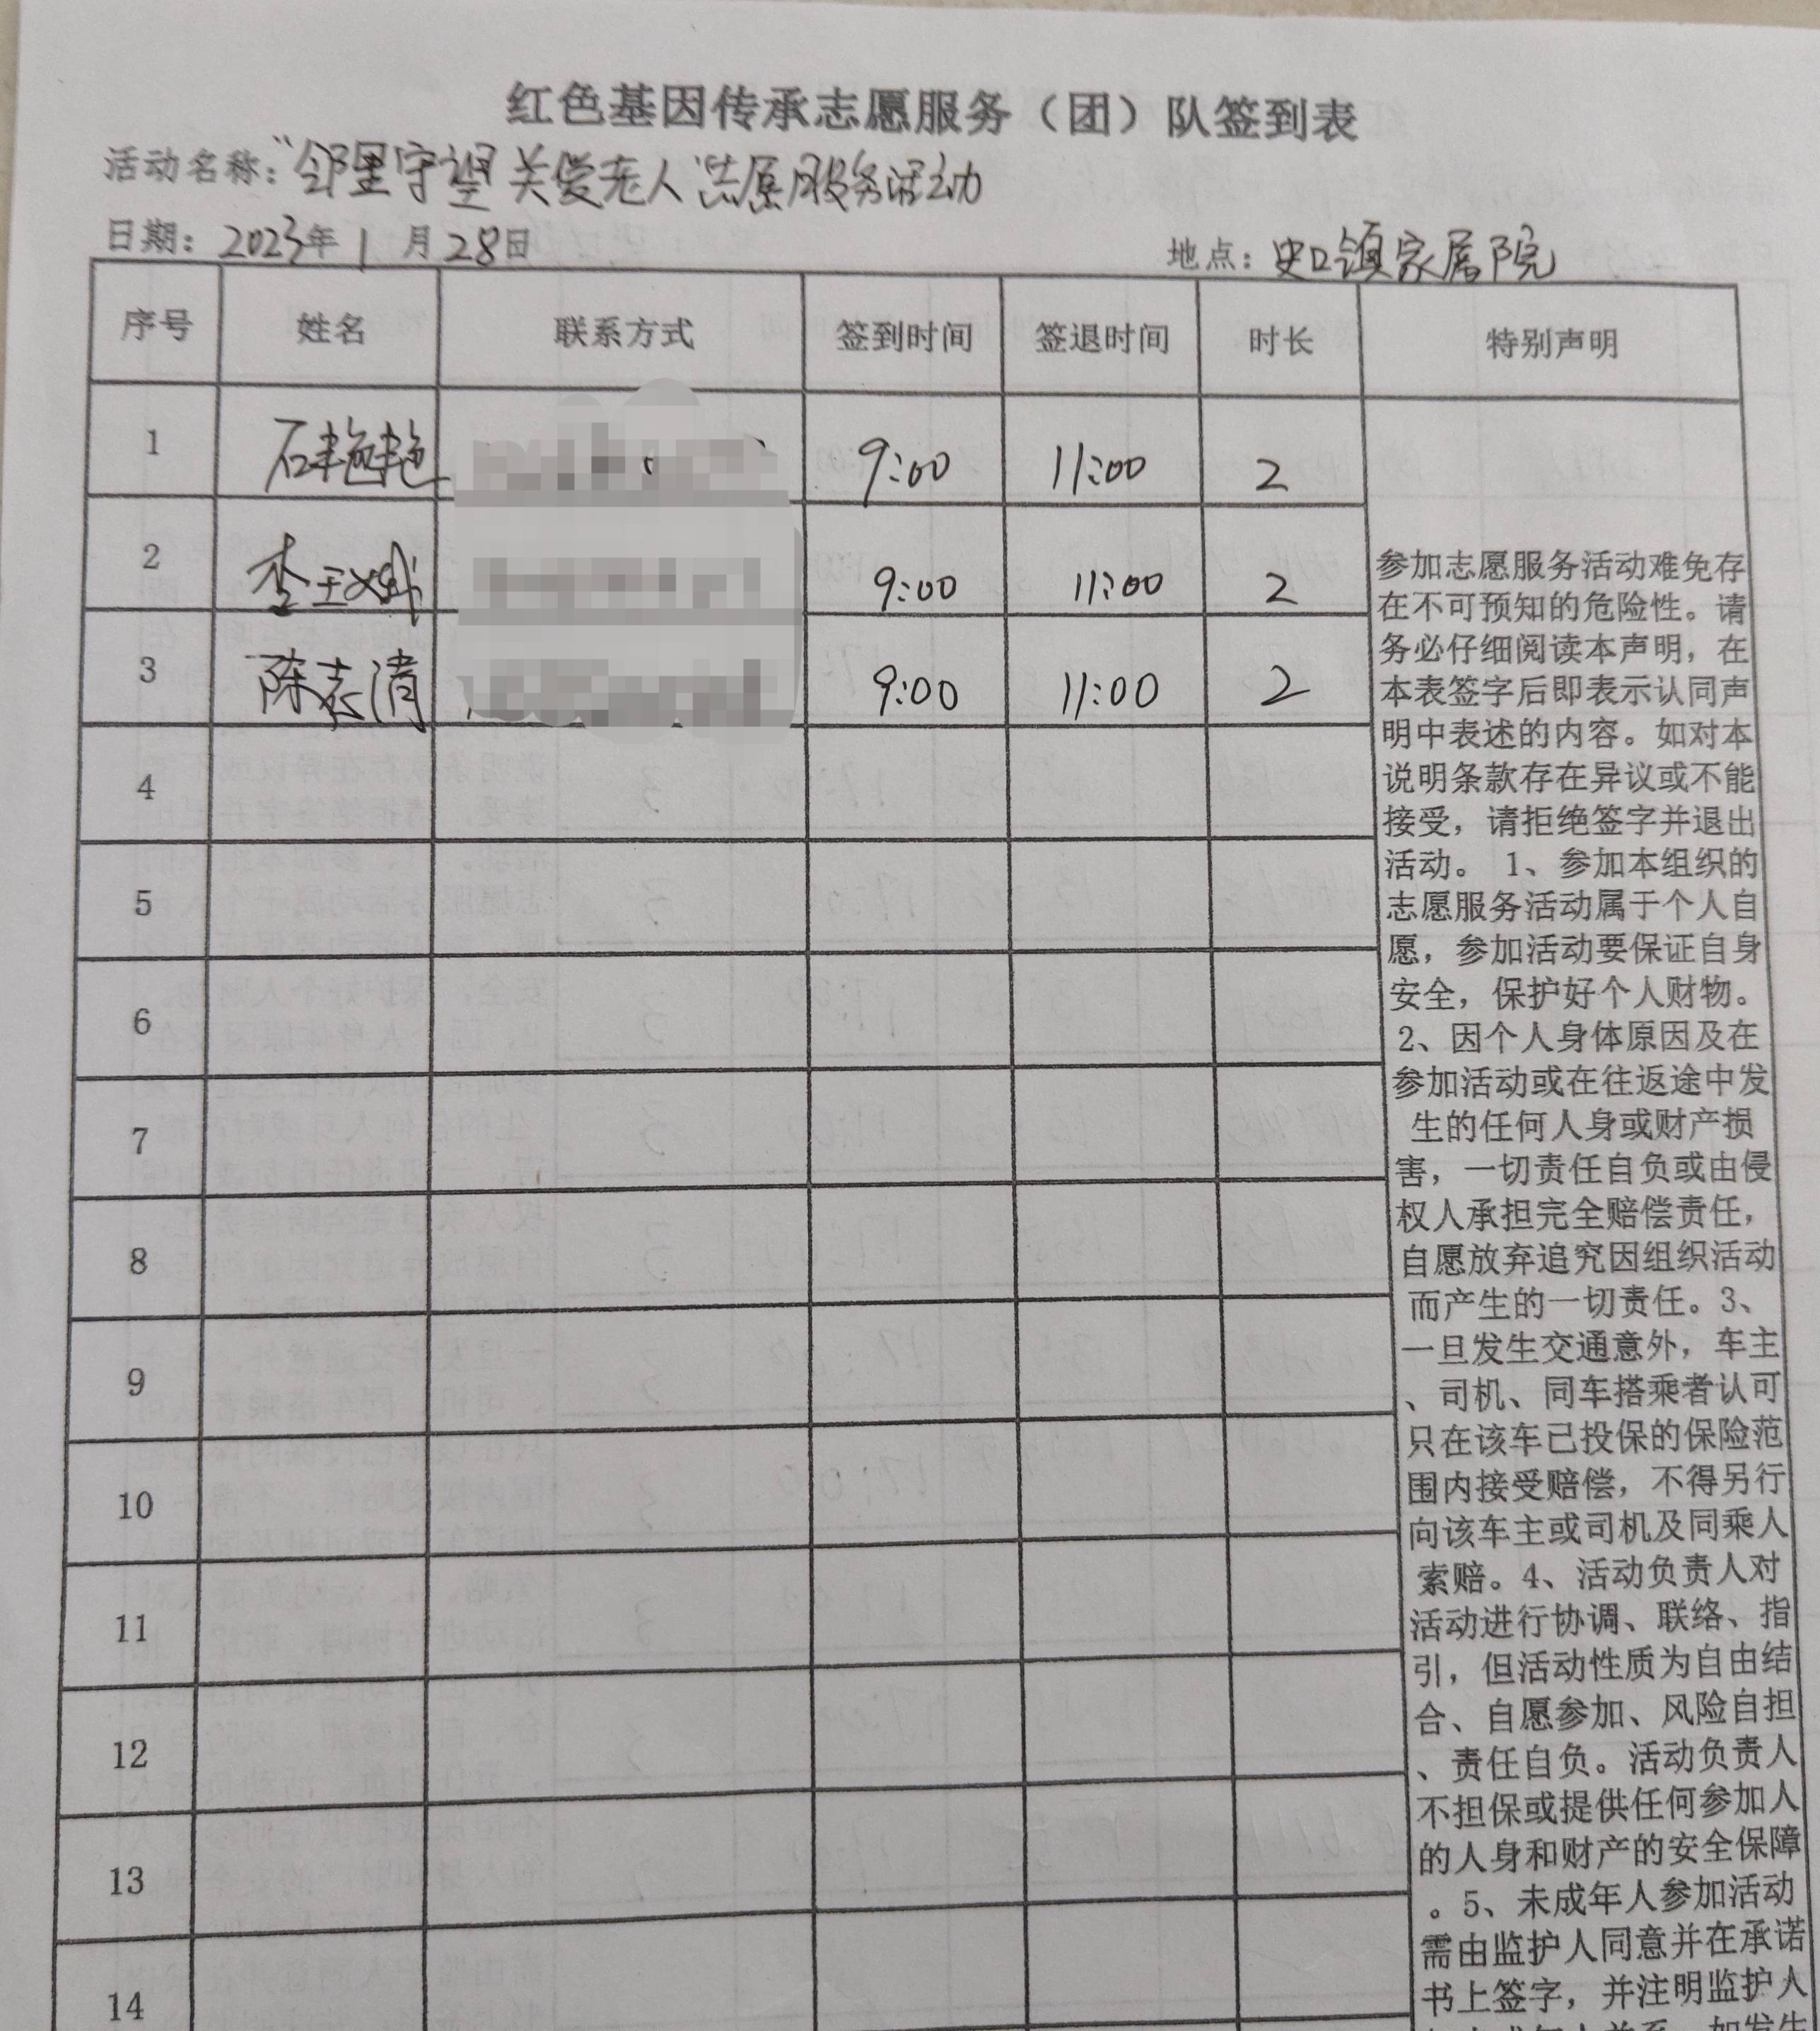 红色基因传承志愿服务（团）队签到表
活动名称：“邻里守望 关爱老人 志愿服务活动
日期：2023年1月28日 地点：史口镇家属院
序号 姓名 联系方式 签到时间 签退时间 时长 特别声明
1 石艳艳 9:00 11:00 2
2 李 9:00 11:00 2
3 陈志清 9:00 11:00 2
4
5
6
7
8
9
10
11
12
13
14
参加志愿服务活动难免存
在不可预知的危险性。请
务必仔细阅读本声明，在
本表签字后即表示认同声
明中表述的内容。如对本
说明条款存在异议或不能
接受，请拒绝签字并退出
活动。 1、参加本组织的
志愿服务活动属于个人自
愿，参加活动要保证自身
安全，保护好个人财物。
2、因个人身体原因及在
参加活动或在往返途中发
生的任何人身或财产损
害，一切责任自负或由侵
权人承担完全赔偿责任，
自愿放弃追究因组织活动
而产生的一切责任。3、
一旦发生交通意外，车主
、司机、同车搭乘者认可
只在该车已投保的保险范
围内接受赔偿，不得另行
向该车主或司机及同乘人
索赔。4、活动负责人对
活动进行协调、联络、指
引，但活动性质为自由结
合、自愿参加、风险自担
、责任自负。活动负责人
不担保或提供任何参加人
的人身和财产的安全保障
。5、未成年人参加活动
需由监护人同意并在承诺
书上签字，并注明监护人